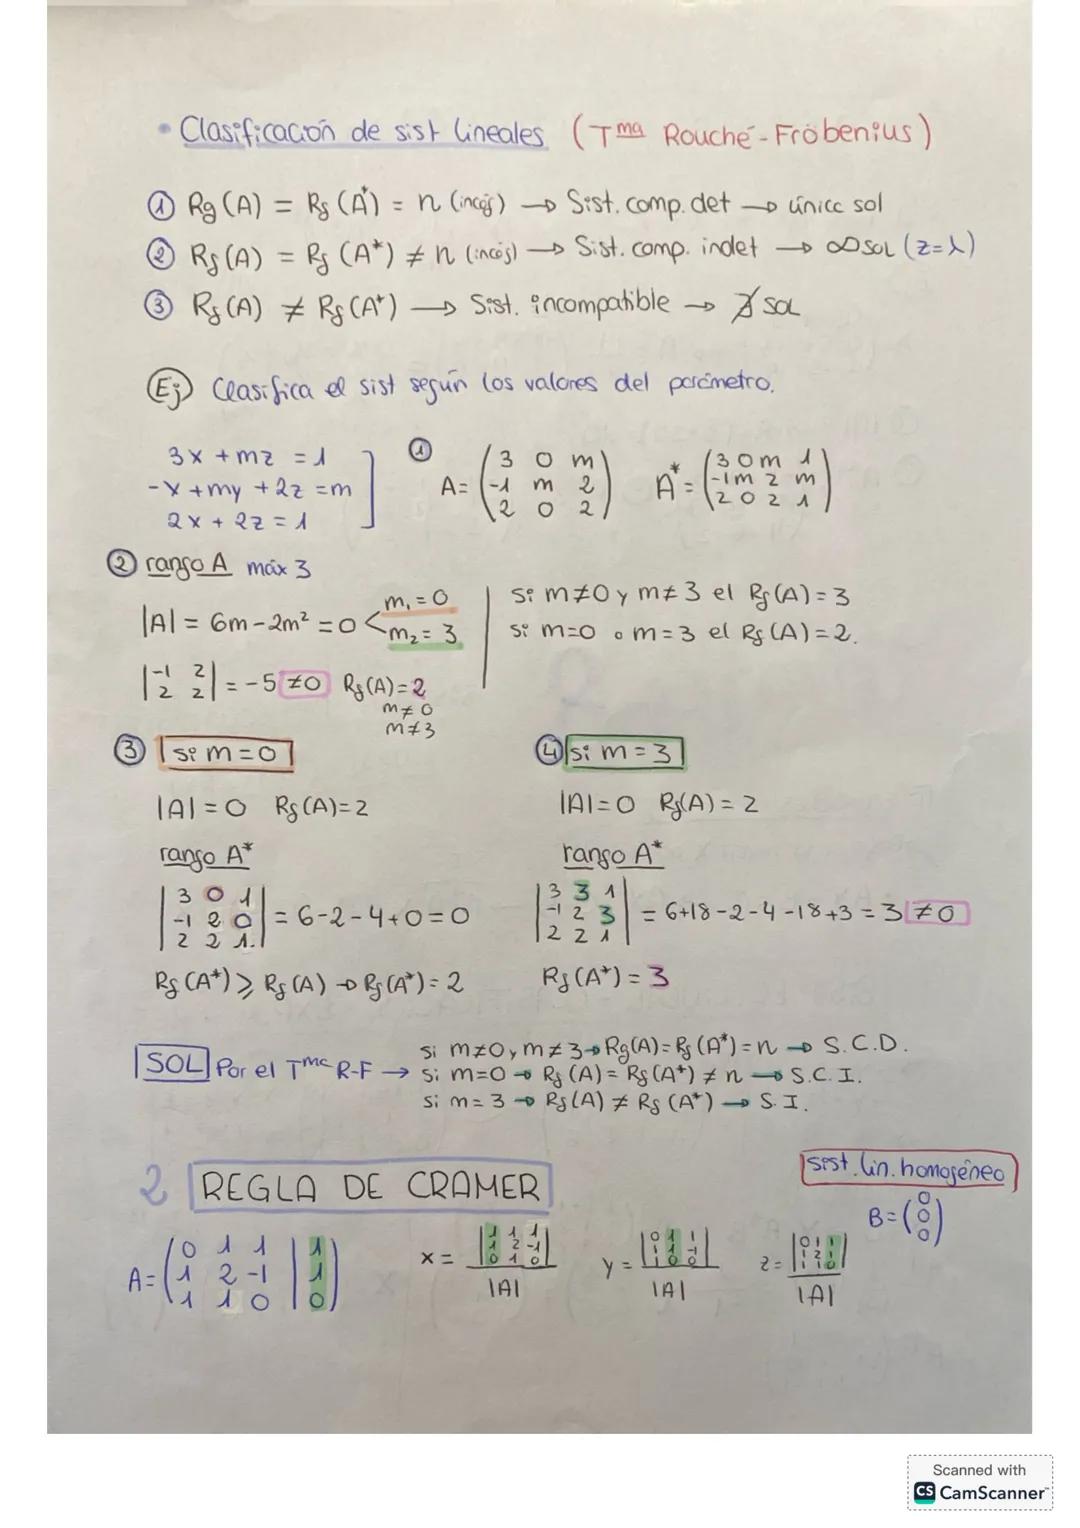 • Clasificación de sist lineales (Tma Rouché-Fröbenius)
① Rg (A) = Rg (A*) = n (incóg) → Sist. comp. det → única sol
② Rg (A) = Rg (A*) ≠ n (incóg) → Sist. comp. indet → ∞ sol (z=λ)
③ Rg (A) ≠ Rg (A*) → Sist. incompatible → ∄ sol
Ej) Clasifica el sist según los valores del parámetro.
3x + mz = 1
-x + my + 2z = m
2x + 2z = 1
① A = (3 0 m
-1 m 2
2 0 2)
A* = (3 0 m 1
-1 m 2 m
2 0 2 1)
② rango A máx 3
|A| = 6m - 2m² = 0 < m₁ = 0
m₂ = 3
|-1 2
2 2| = -5 ≠0 Rg (A) = 2
m ≠ 0
m ≠ 3
si m≠0 y m≠3 el Rg (A) = 3
si m=0 o m=3 el Rg (A) = 2.
③ si m = 0
|A| = 0 Rg (A) = 2
rango A*
|3 0 1
-1 2 0
2 2 1.| = 6-2-4+0 = 0
Rg (A*) ⩾ Rg (A) → Rg (A*) = 2
④ si m = 3
|A| = 0 Rg(A) = 2
rango A*
|3 3 1
-1 2 3
2 2 1| = 6+18-2-4-18+3 = 3 ≠0
Rg (A*) = 3
SOL Por el Tma R-F →
si m≠0 y m≠3 → Rg(A) = Rg (A*) = n → S.C.D.
si m=0 → Rg (A) = Rg (A*) ≠ n → S.C.I.
si m=3 → Rg (A) ≠ Rg (A*) → S.I.
2 REGLA DE CRAMER
sist. lin. homogéneo
B = (0
0
0)
A = (0 1 1 | 1
1 2 -1 | 1
1 1 0 | 0)
x = |1 1 1
1 2 -1
0 1 0|
|A|
y = |0 1 1
1 1 -1
1 0 0|
|A|
z = |0 1 1
1 2 1
1 1 0|
|A|
Scanned with
CS CamScanner™